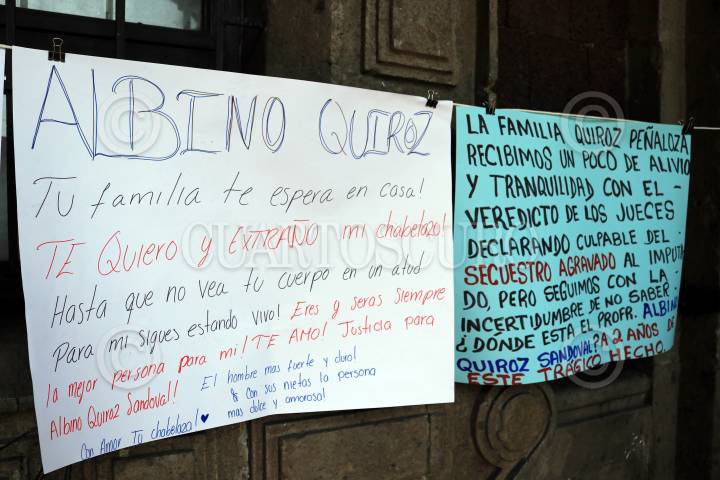 ALBINO QUIROZ
Tu familia te espera en casa!
TE QUIERO y EXTRAÑO mi chabelazo!
Hasta que no vea tu cuerpo en un atud
Para mi sigues estando vivo! Eres y seras Siempre
la mejor persona para mi! TE AMO! Justicia para
Albino Quiroz Sandoval!!
El hombre mas fuerte y duro!
& Con sus nietas la persona
mas dulce y amorosa!
Con Amor Tu chabelaza!
LA FAMILIA QUIROZ PEÑALOZA
RECIBIMOS UN POCO DE ALIVIO
Y TRANQUILIDAD CON EL -
VEREDICTO DE LOS JUECES
DECLARANDO CULPABLE DEL -
SECUESTRO AGRAVADO AL IMPUTA
DO, PERO SEGUIMOS CON LA -
INCERTIDUMBRE DE NO SABER -
¿DÓNDE ESTA EL PROFR. ALBINO
QUIROZ SANDOVAL? A 2 AÑOS DE
ESTE TRÁGICO HECHO.
CUARTOSCURO